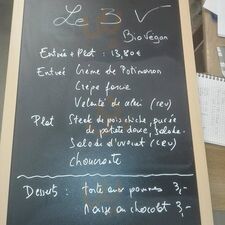 Le 3 V
Bio Végan
Entrée + Plat : 13,80€
Entrée Crème de Potimarron
Crêpe farcie
Velouté de céleri (cru)
Plat Steak de pois chiche, purée
de patate douce, salade.
Salade d'avocat (cru)
Choucroute
Desserts : Tarte aux pommes 3,-
au chocolat 3,-